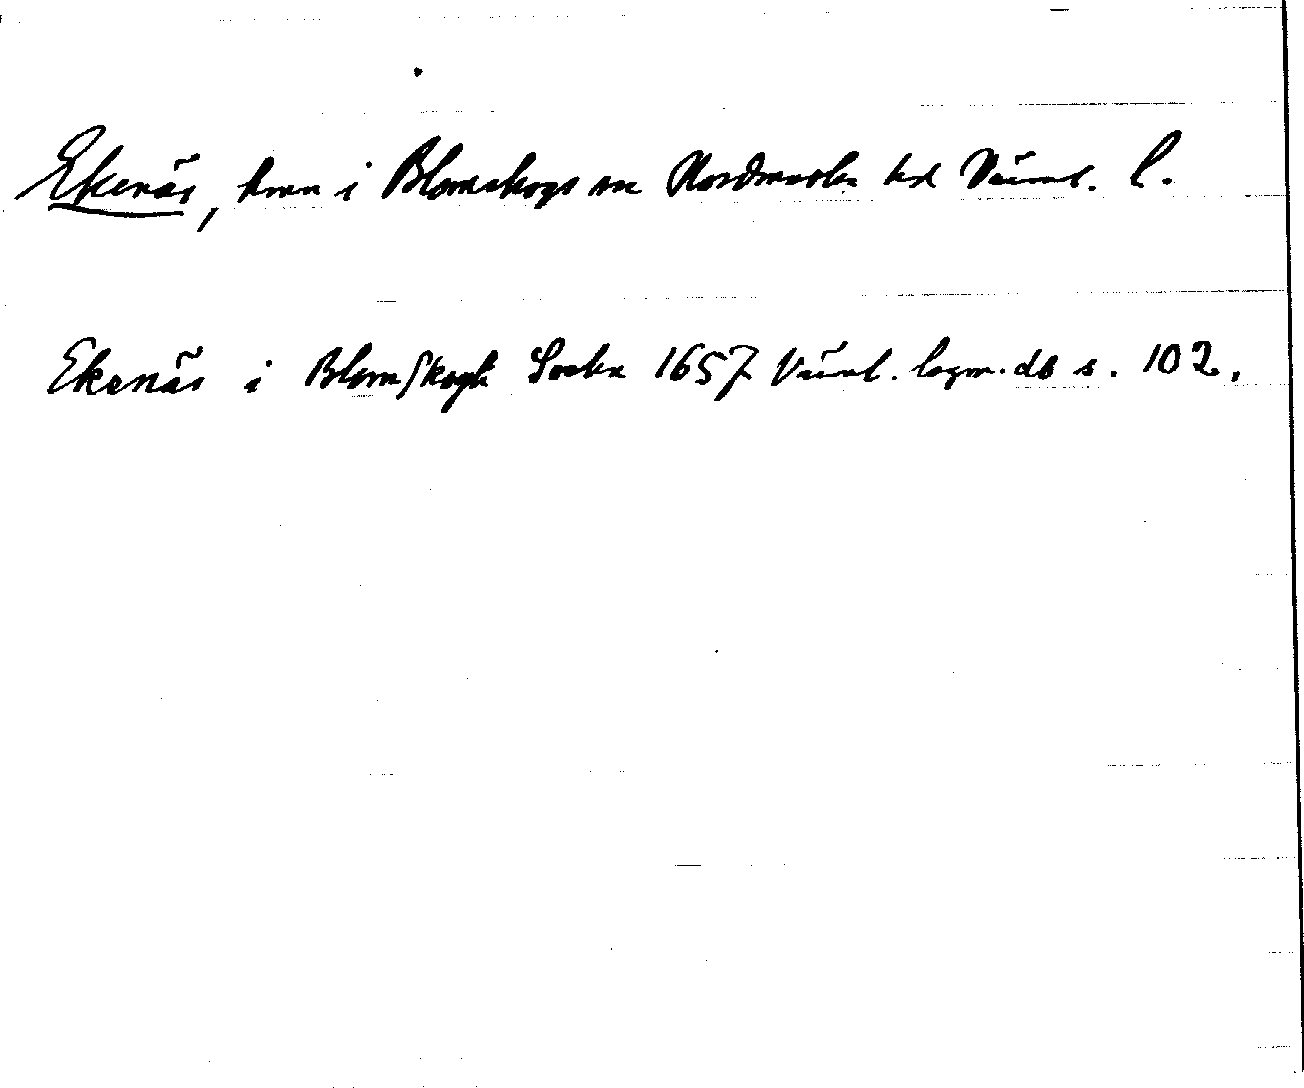 Ekenäs, hmn i Blomskogs sn Nordmarks hd Värml. l.
Ekenäs i Blomskogs Sockn 1657 Värml. lagm. db s. 102.